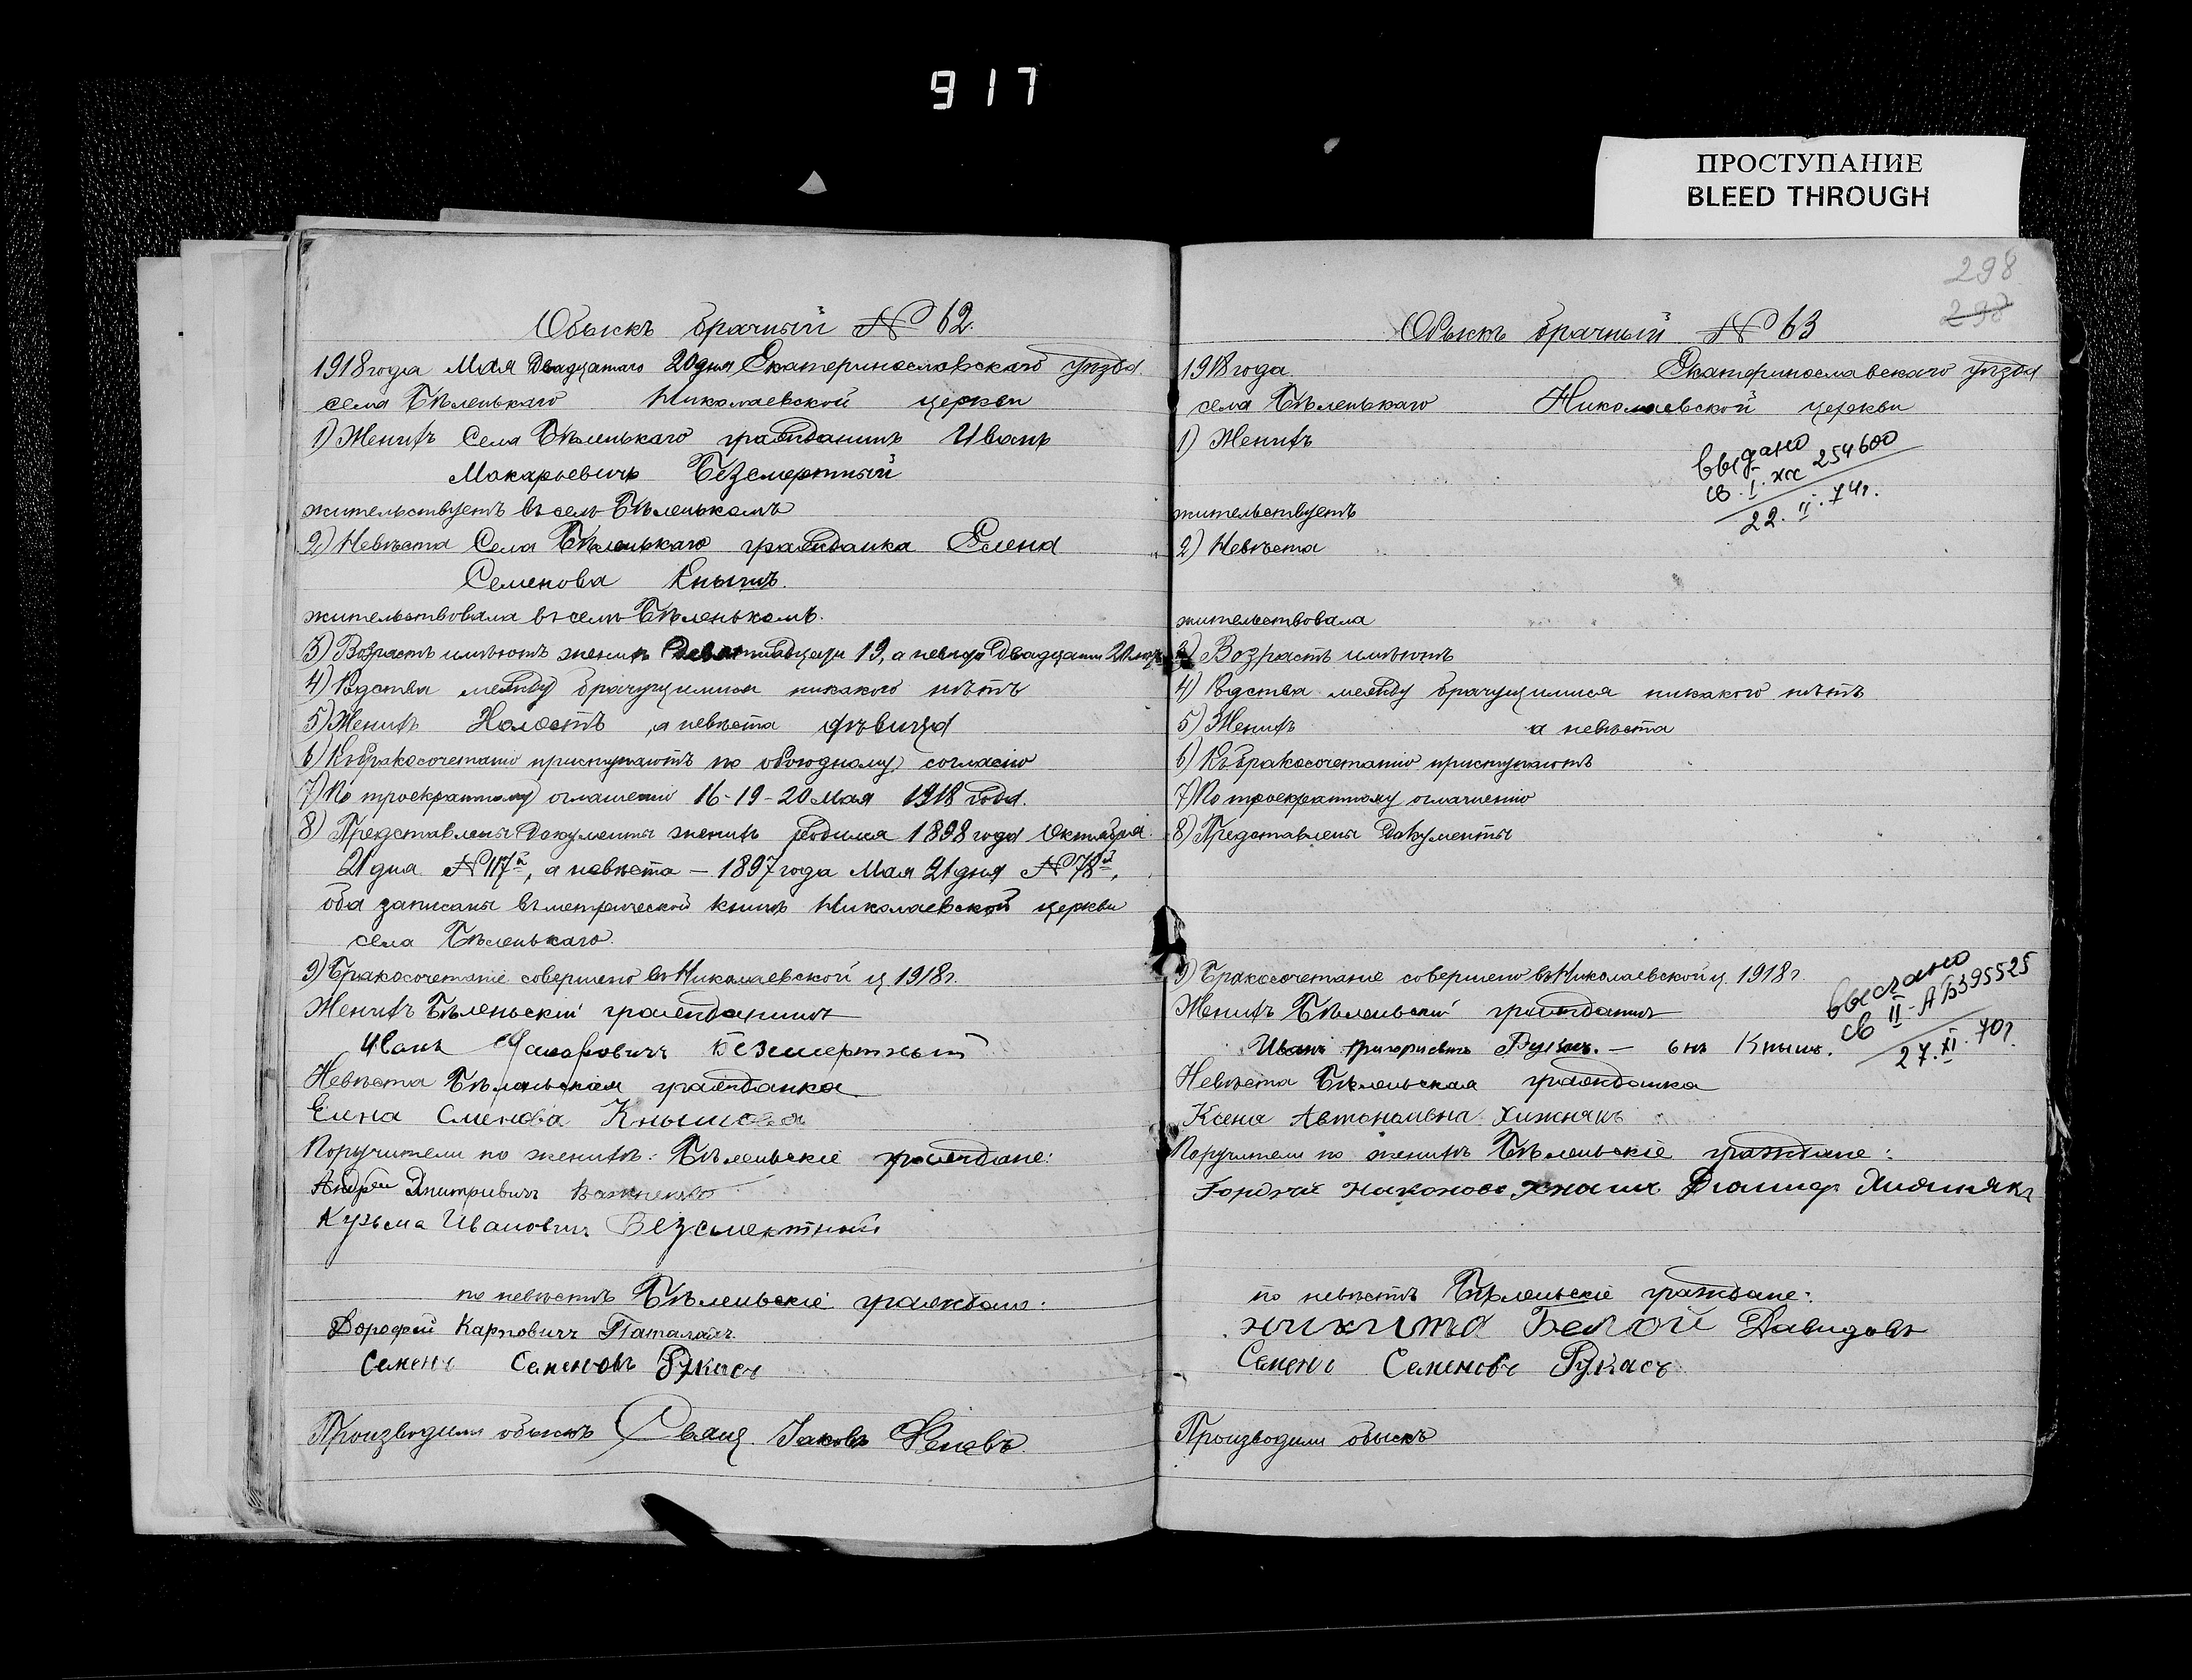 917
ПРОСТУПАНИЕ
BLEED THROUGH
Обыскъ брачный № 62.
1918 года Мая Двадцатаго 20 дня Екатеринославскаго уѣзда
села Бѣленькаго Николаевской церкви
1) Женихъ Села Бѣленькаго гражданинъ Иванъ
Макарьевичъ Безсмертный
жительствуетъ въ селѣ Бѣленькомъ
2) Невѣста Села Бѣленькаго гражданка Елена
Семенова Кнышъ.
жительствовала въ селѣ Бѣленькомъ.
3) Возрастъ имѣютъ женихъ Девятнадцати 19, а невѣста Двадцати
4) Родства между брачущимися никакого нѣтъ
5) Женихъ Холостъ, а невѣста дѣвица
6) Къ бракосочетанію приступаютъ по обоюдному согласію
7) По троекратному оглашенію 16-19-20 Мая 1918 года.
8) Представлены Документы женихъ родился 1898 года Октября
21 дня № 117й, а невѣста — 1897 года Мая 21 дня № 78й,
оба записаны въ метрической книгѣ Николаевской церкви
села Бѣленькаго.
9) Бракосочетаніе совершено въ Николаевской ц 1918 г.
Женихъ Бѣленьскій гражданинъ
Иванъ Макаровичъ Безсмертный
Невѣста Бѣленьская гражданка
Елена Сменова Кнышова
Поручители по женихѣ: Бѣленьскіе граждане:
Андрей Дмитриевич
Кузьма Иванович Безсмертный
по невѣстѣ Бѣленьскіе граждане:
Дорофей Карпович Паталахъ
Семенъ Семеновъ Рукасъ
Производили обыскъ Свящ. Іаковъ
298
298
Обыскъ брачный № 63
1918 года. Екатеринославскаго уѣзда
села Бѣленькаго Николаевской церкви
1) Женихъ
выдано
св. I. 254600
22. II. 74г.
жительствуетъ
2) Невѣста
жительствовала
3) Возрастъ имѣютъ
4) Родства между брачущимися никакого нѣтъ
5) Женихъ а невѣста
6) Къ бракосочетанію приступаютъ
7) По троекратному оглашенію
8) Представлены Документы
9) Бракосочетаніе совершено въ Николаевской ц. 1918 г.
выслано
св II-АБ395525
27.XI.70г.
Женихъ Бѣленьскій гражданинъ
Иванъ Григориевъ — онъ Кнышъ.
Невѣста Бѣленьская гражданка
Ксенія Автономовна Хижнякъ
Поручители по женихѣ Бѣленьскіе граждане:
Гордѣй Хижнякъ
по невѣстѣ Бѣленьскіе граждане:
Никита Белой Давидовъ
Семенъ Семеновъ Рукасъ
Производили обыскъ